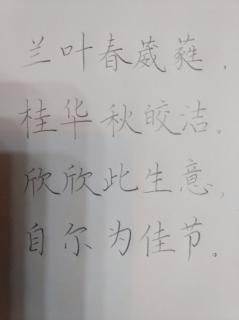 兰叶春葳蕤，
桂华秋皎洁。
欣欣此生意，
自尔为佳节。